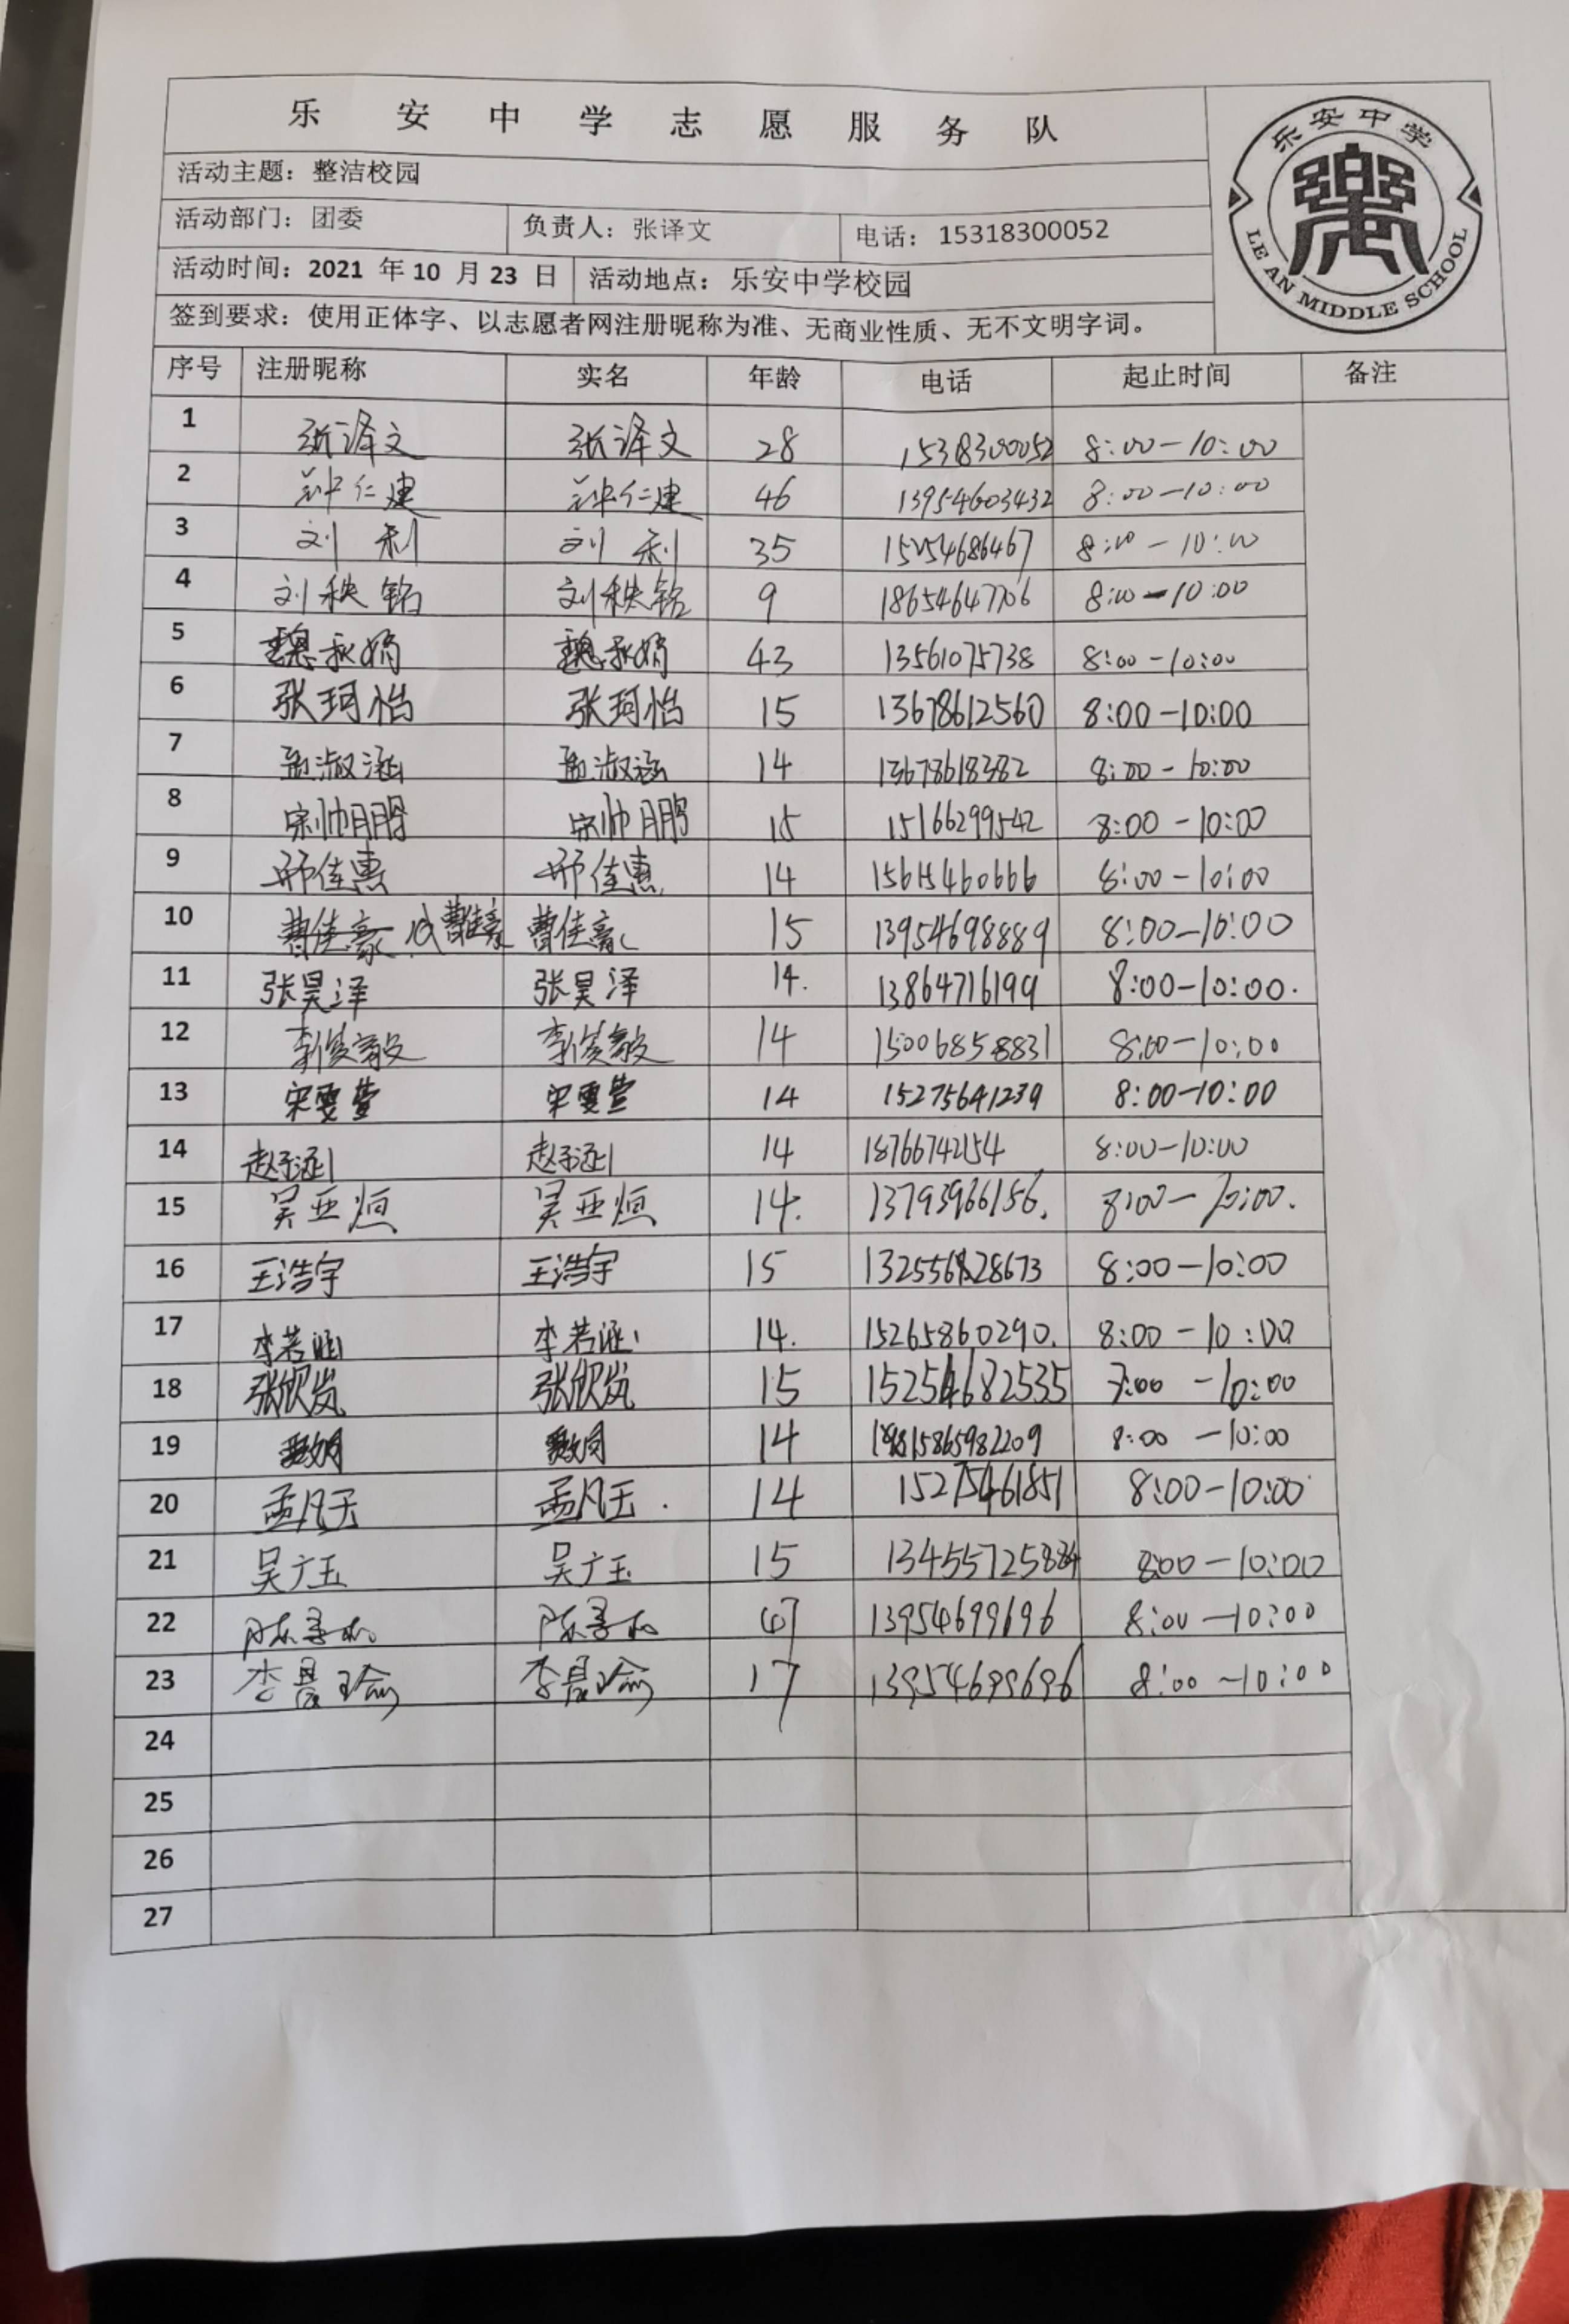 乐安中学志愿服务队
乐安中学
LE AN MIDDLE SCHOOL
活动主题：整洁校园
活动部门：团委 负责人：张译文 电话：15318300052
活动时间：2021 年 10 月 23 日 活动地点：乐安中学校园
签到要求：使用正体字、以志愿者网注册昵称为准、无商业性质、无不文明字词。
序号 注册昵称 实名 年龄 电话 起止时间 备注
1 张译文 张译文 28 15318300052 8:00-10:00
2 钟仁建 钟仁建 46 13954603432 8:00-10:00
3 刘利 刘利 35 15254686467 8:00-10:00
4 刘秩铭 刘秩铭 9 18654647706 8:00-10:00
5 魏永娟 魏永娟 43 13561075738 8:00-10:00
6 张珂怡 张珂怡 15 13678612560 8:00-10:00
7 孟淑涵 孟淑涵 14 13678618382 8:00-10:00
8 宋帅鹏 宋帅鹏 15 15166299542 8:00-10:00
9 邢佳惠 邢佳惠 14 15615460666 8:00-10:00
10 曹佳豪 曹佳豪 15 13954698889 8:00-10:00
11 张昊泽 张昊泽 14. 13864716199 8:00-10:00.
12 李俊毅 李俊毅 14 15006858831 8:00-10:00
13 宋雯萱 宋雯萱 14 15275641239 8:00-10:00
14 赵子涵 赵子涵 14 18766742154 8:00-10:00
15 吴亚烜 吴亚烜 14. 13793966156. 8:00-10:00.
16 王浩宇 王浩宇 15 8:00-10:00
17 李若涵 李若涵 14. 15265860290. 8:00-10:00
18 张欣岚 张欣岚 15 15254682535 7:00-10:00
19 14 15865982209 8:00-10:00
20 孟凡玉 孟凡玉. 14 15275461851 8:00-10:00
21 吴广玉 吴广玉 15 13455725884 8:00-10:00
22 47 13954699696 8:00-10:00
23 李晨瑜 李晨瑜 17 13954699696 8:00-10:00
24
25
26
27